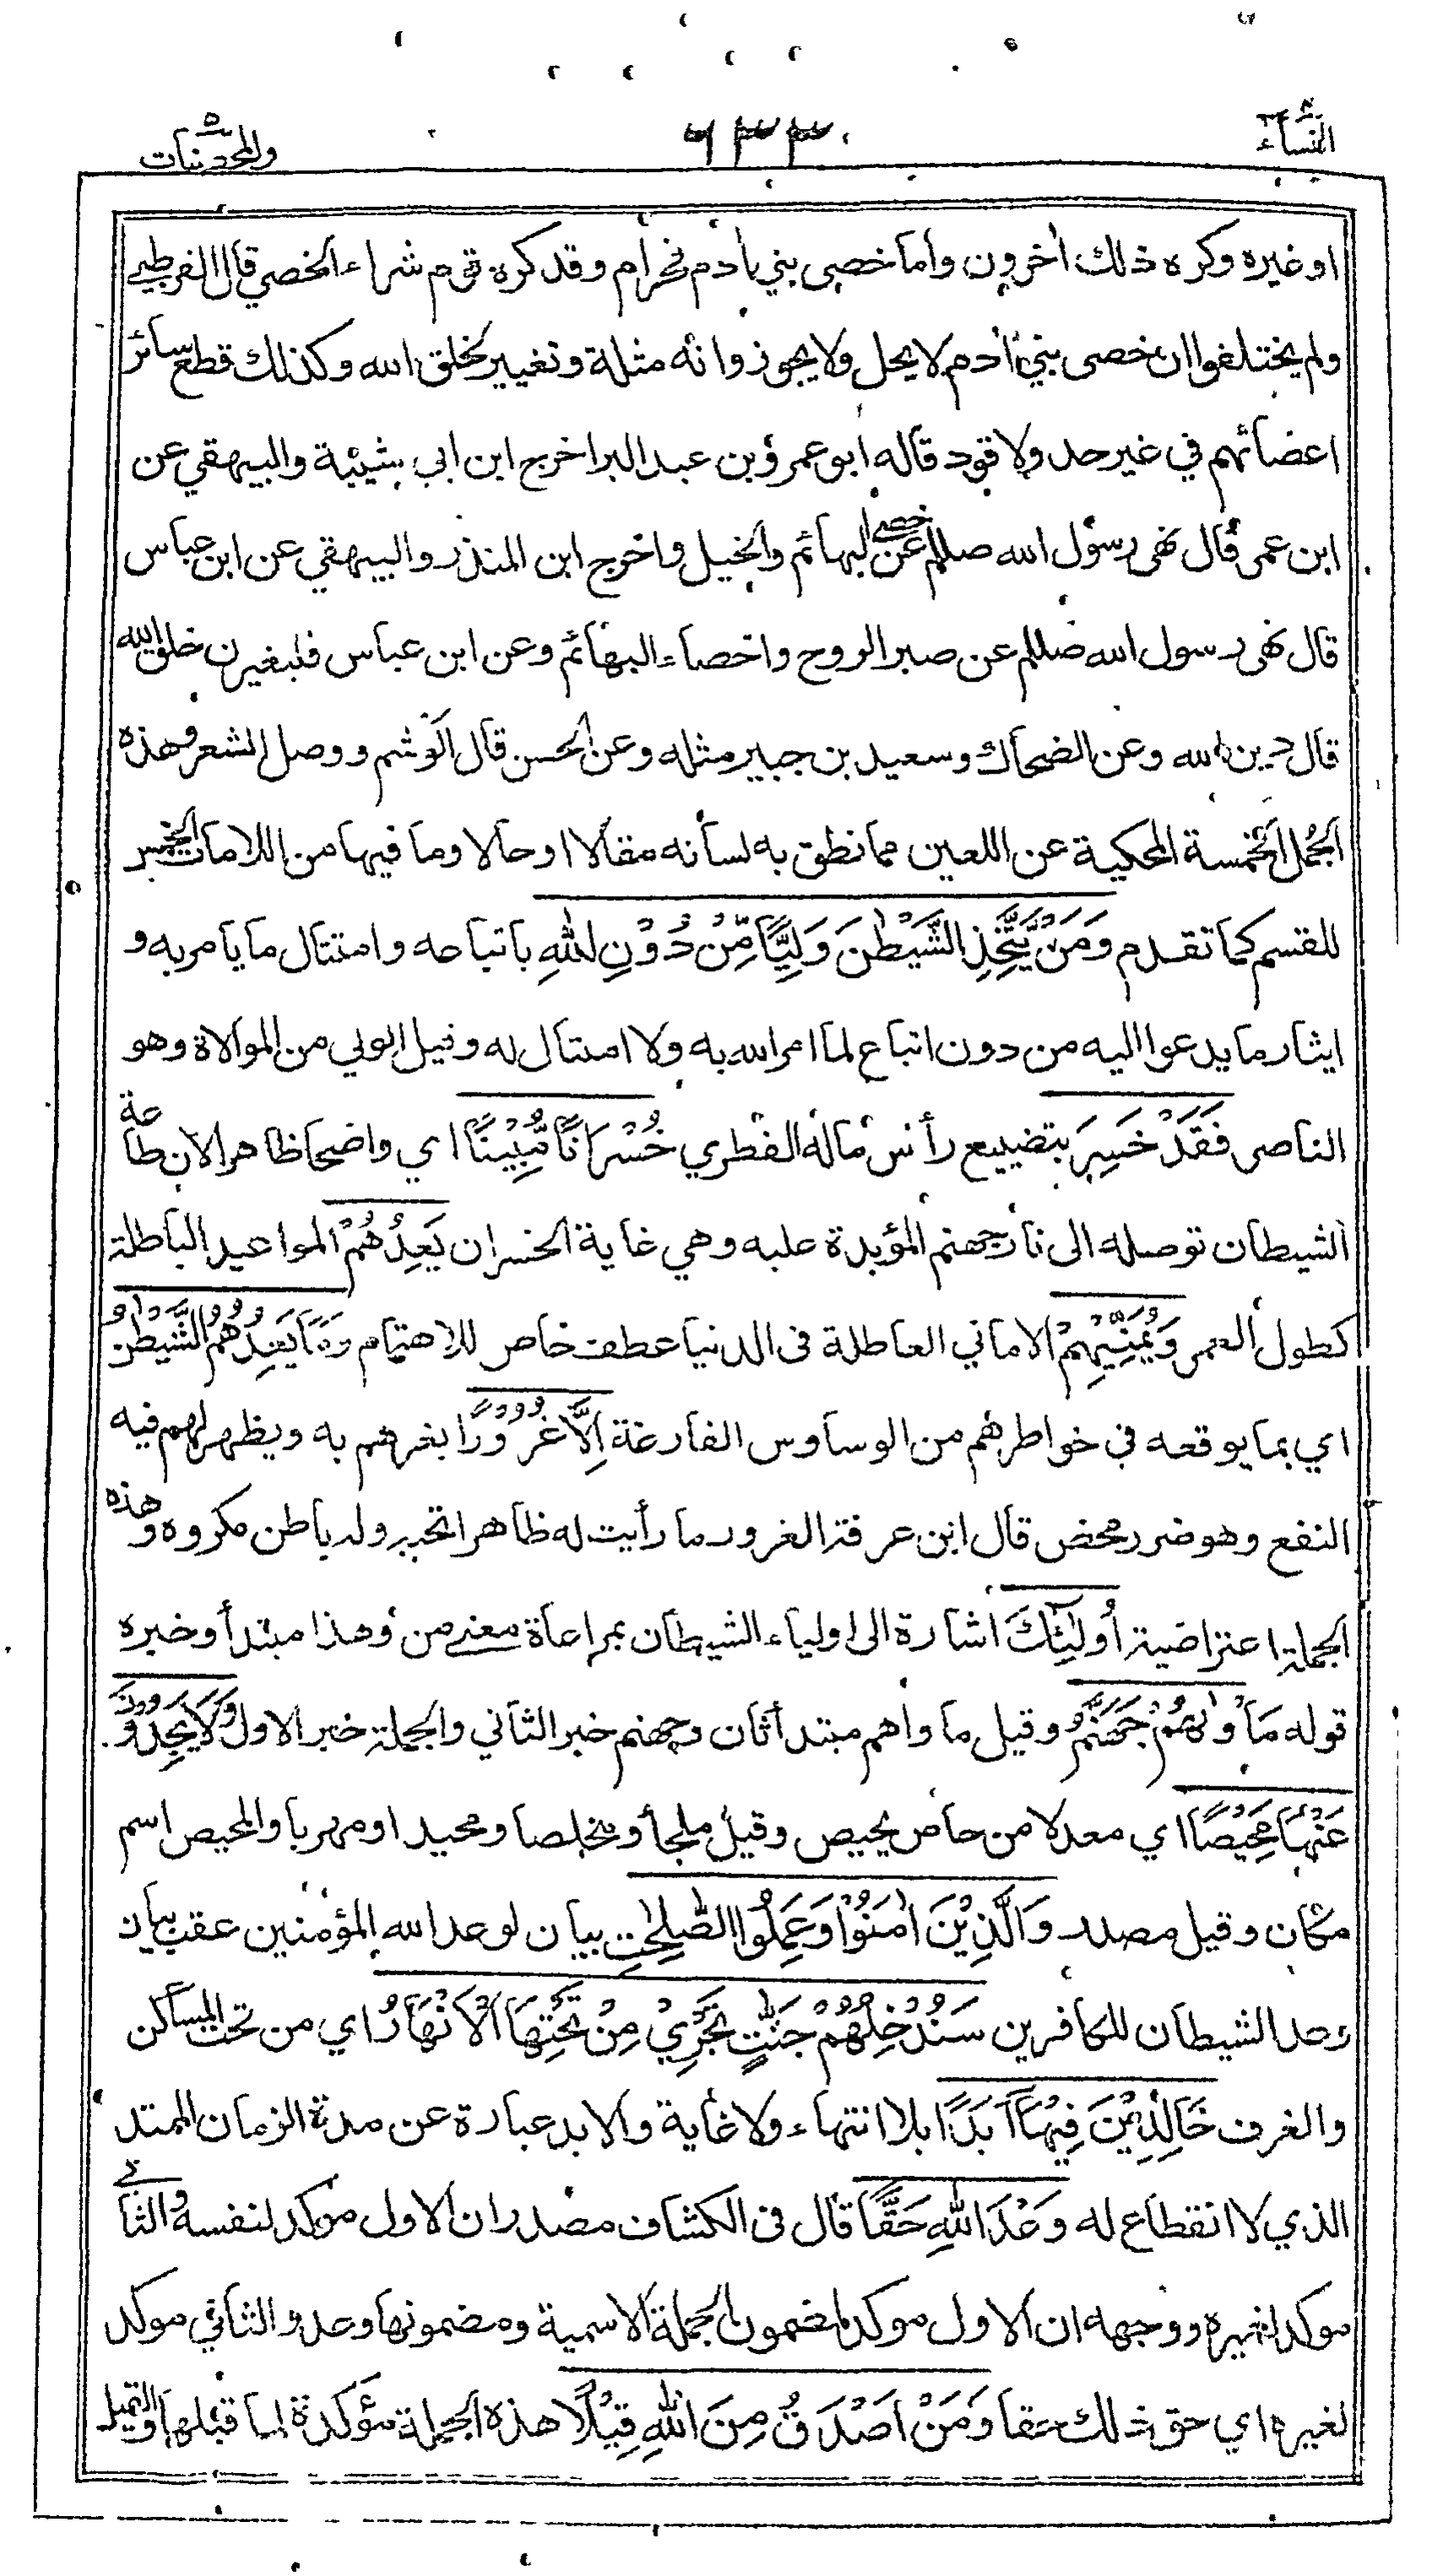 النسآء ٤
٦٣٣
والمحصنات ٥
او غيره وكره ذلك أخرون وأما خصى بني أدم فحرام وقد كره قوم شراء الخصي قال القرطبي
ولم يختلفوا ان خصى بني أدم لا يحل ولا يجوز وانه مثلة وتغيير لخلق الله وكذلك قطع سائر
اعضائهم في غير حد ولا قود قاله ابو عمرو بن عبد البر اخرج ابن ابي شيبة والبيهقي عن
ابن عمر قال نهى رسول الله صللم عن خصي البهائم والخيل واخرج ابن المنذر والبيهقي عن ابن عباس
قال نهى رسول الله صللم عن صبر الروح واخصاء البهائم وعن ابن عباس فليغيرن خلق الله
قال دين الله وعن الضحاك وسعيد بن جبير مثله وعن الحسن قال الوشم ووصل الشعر وهذه
الجمل الخمسة المحكية عن اللعين مما نطق به لسانه مقالا او حالا وما فيها من اللامات الخمس
للقسم كما تقدم وَمَنْ يَّتَّخِذِ الشَّيْطٰنَ وَلِيًّا مِّنْ دُوْنِ اللّٰهِ باتباعه وامتثال ما يأمر به و
ايثار ما يدعوا اليه من دون اتباع لما امر الله به ولا امتثال له وقيل الولي من الموالاة وهو
الناصر فَقَدْ خَسِرَ بتضييع رأس ماله الفطري خُسْرَانًا مُّبِيْنًا اي واضحا ظاهرا لان طاعة
الشيطان توصله الى نار جهنم المؤبدة عليه وهي غاية الخسران يَعِدُهُمْ المواعيد الباطلة
كطول العمر وَيُمَنِّيْهِمْ الاماني العاطلة في الدنيا عطف خاص للاهتمام وَمَا يَعِدُهُمُ الشَّيْطٰنُ
اي بما يوقعه في خواطرهم من الوساوس الفارغة اِلَّا غُرُوْرًا يغرهم به ويظهر لهم فيه
النفع وهو ضرر محض قال ابن عرفة الغرور ما رأيت له ظاهرا تحبه وله باطن مكروه وهذه
الجملة اعتراضية أُولٰٓئِكَ اشارة الى اولياء الشيطان بمراعاة معنى من وهذا مبتدأ وخبره
قوله مَأْوٰىهُمْ جَهَنَّمُ وقيل مأواهم مبتدأ ثان وجهنم خبر الثاني والجملة خبر الاول وَلَا يَجِدُوْنَ
عَنْهَا مَحِيْصًا اي معدلا من حاص يحيص وقيل ملجأ ومخلصا ومحيدا ومهربا والمحيص اسم
مكان وقيل مصدر وَالَّذِيْنَ اٰمَنُوْا وَعَمِلُوا الصّٰلِحٰتِ بيان لوعد الله للمؤمنين عقب بيان
وعد الشيطان للكافرين سَنُدْخِلُهُمْ جَنّٰتٍ تَجْرِيْ مِنْ تَحْتِهَا الْاَنْهَارُ اي من تحت المساكن
والغرف خَالِدِيْنَ فِيْهَآ اَبَدًا بلا انتهاء ولا غاية والابد عبارة عن مدة الزمان الممتد
الذي لا انقطاع له وَعْدَ اللّٰهِ حَقًّا قال في الكشاف مصدران الاول مؤكد لنفسه والثاني
موكد لغيره ووجهه ان الاول موكد لمضمون الجملة الاسمية ومضمونها وعد والثاني موكد
لغيره اي حق ذلك حقا وَمَنْ اَصْدَقُ مِنَ اللّٰهِ قِيْلًا هذه الجملة مؤكدة لما قبلها والقيل